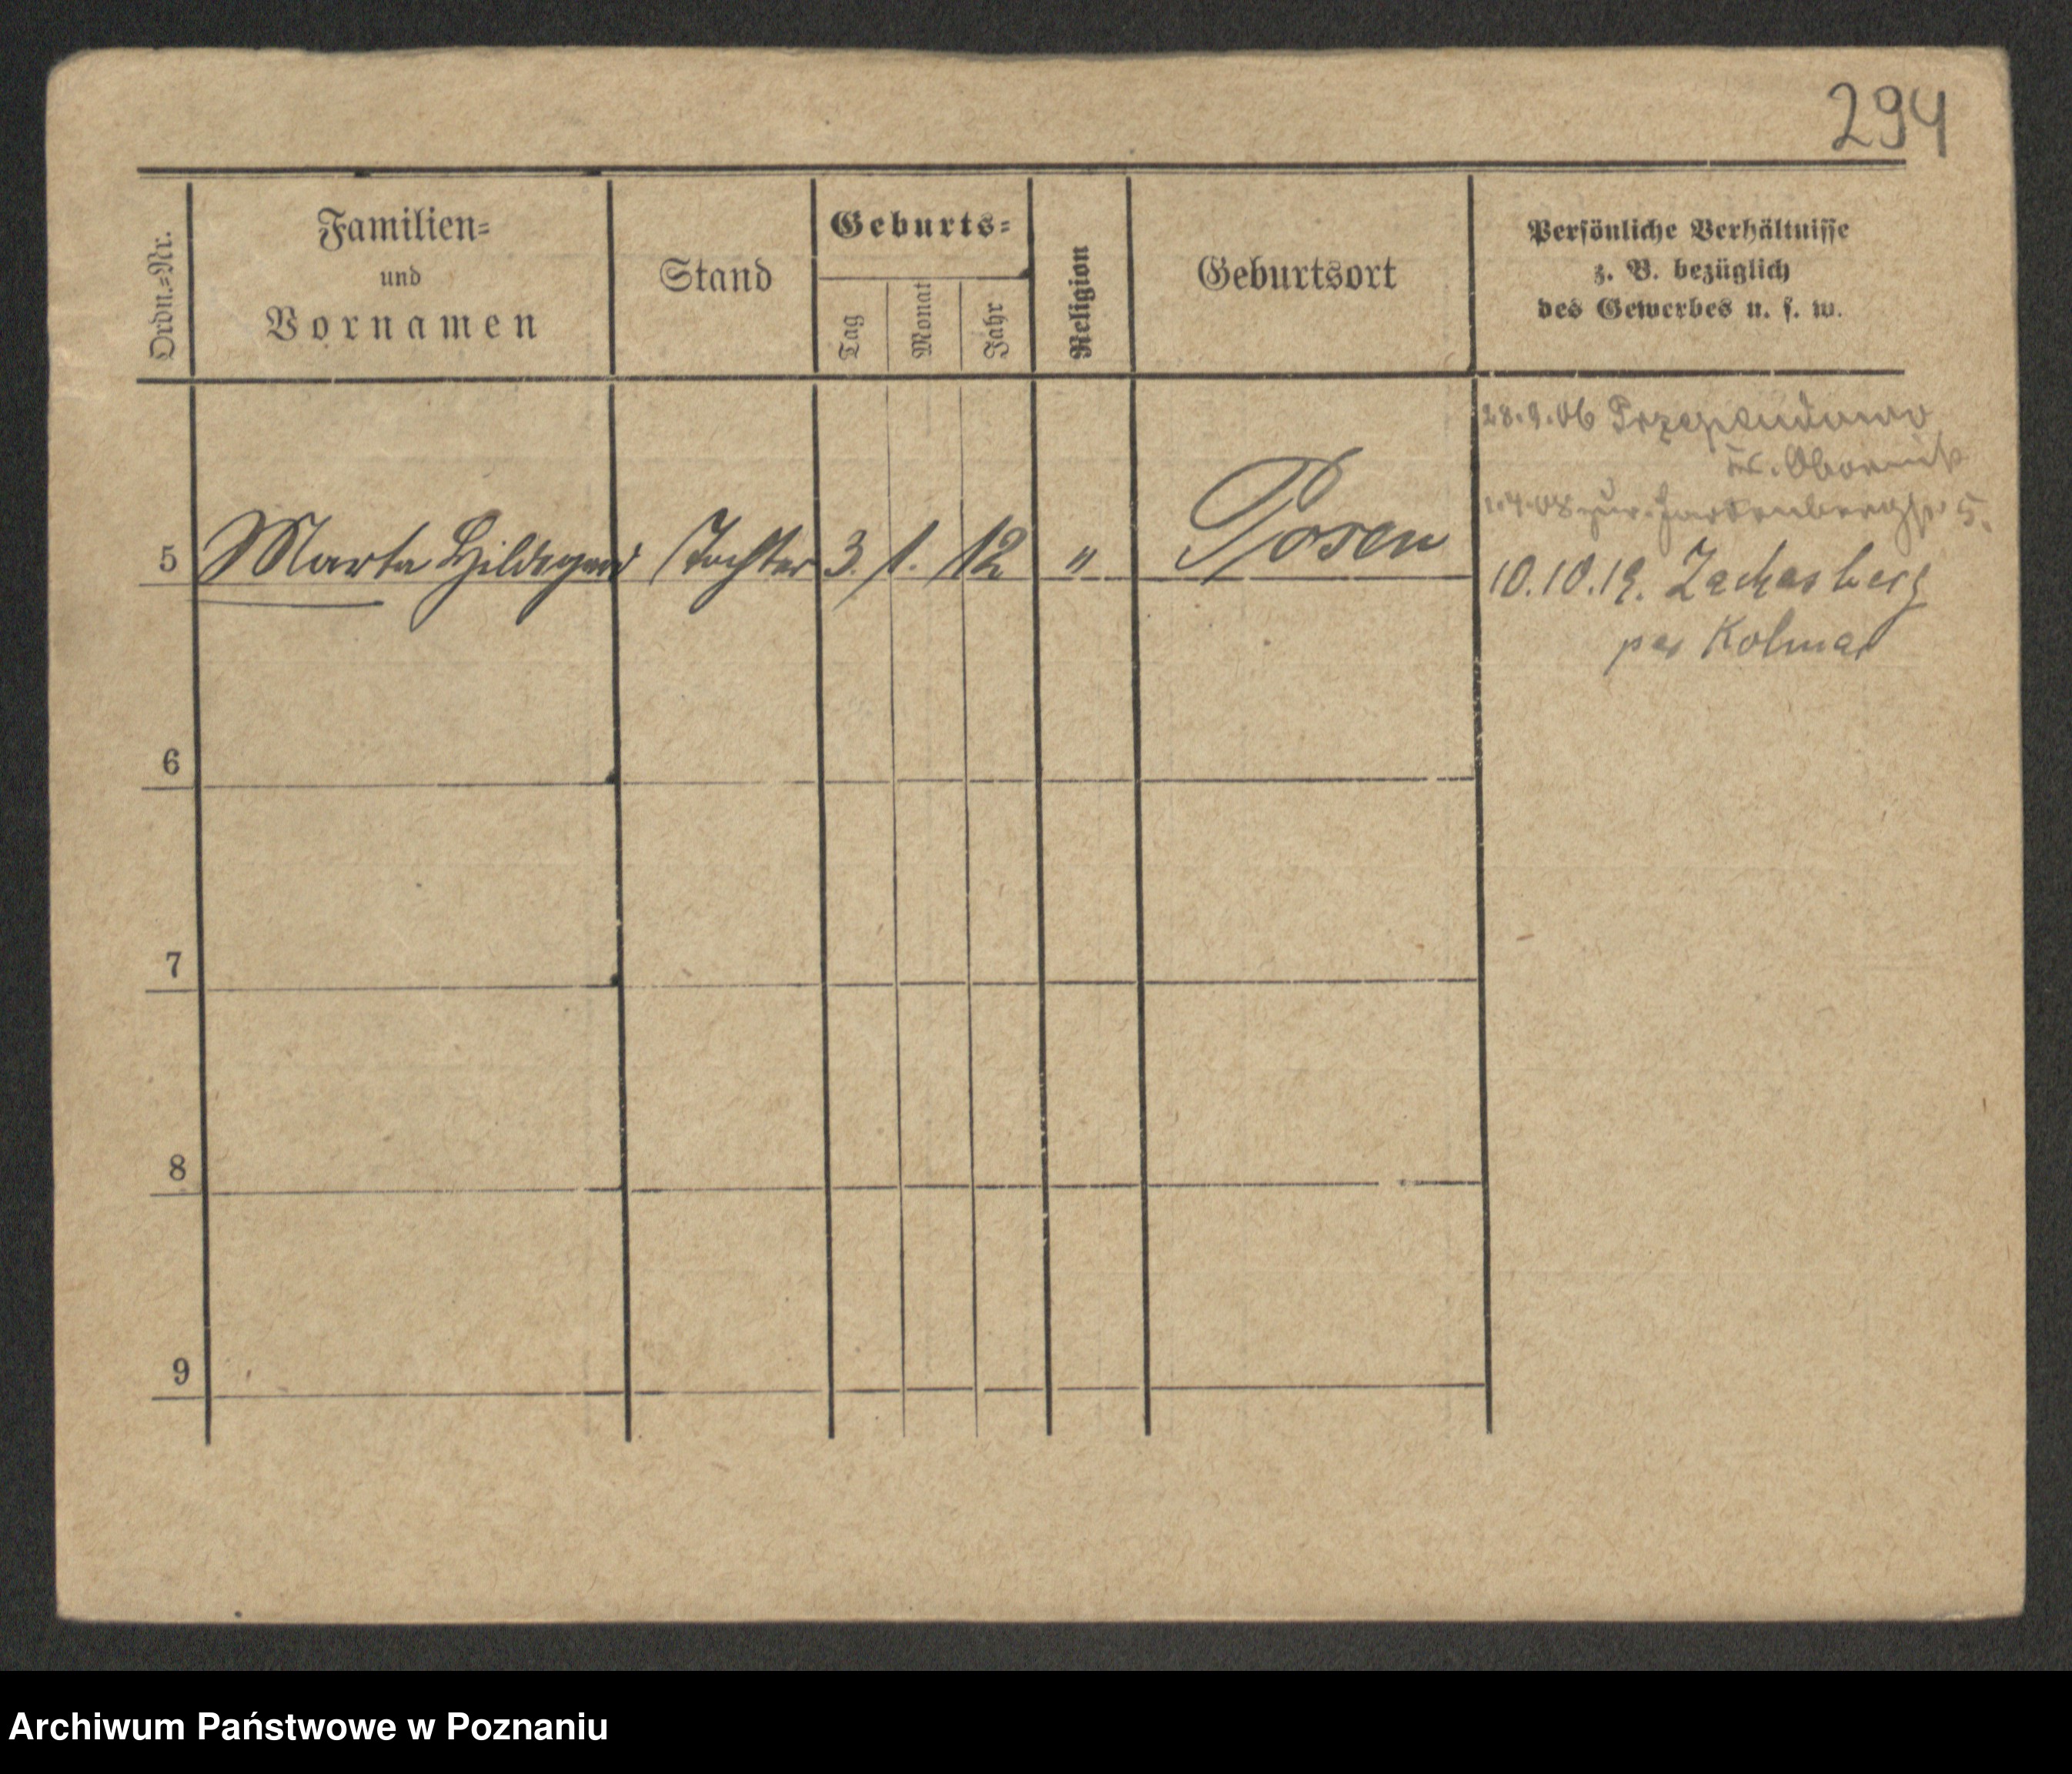 294
Ordn.=Nr.
Familien=
und
Vornamen
Stand
Geburts=
Tag
Monat
Jahr
Religion
Geburtsort
Persönliche Verhältnisse
z. B. bezüglich
des Gewerbes u. s. w.
28.9.06
Kr. Obornik
1.4.08 zur.
5.
5 Marta Hildegard Tochter 3. 1. 12 " Posen
10.10.19. Zachasberg
per Kolmar
6
7
8
9
Archiwum Państwowe w Poznaniu